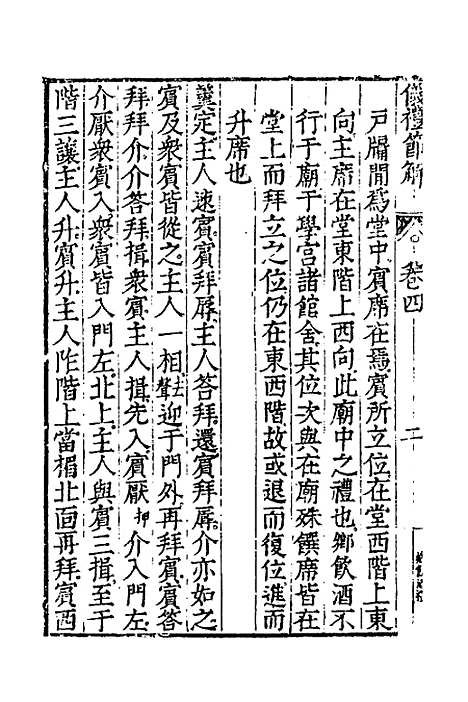 儀禮節解 卷四 二
戶牖閒爲堂中賓席在焉賓所立位在堂西階上東
向主席在堂東階上西向此廟中之禮也鄉飲酒不
行于廟于學宮諸館舍其位次與在廟殊饌席皆在
堂上而拜立之位仍在東西階故或退而復位進而
升席也
羹定主人速賓賓拜辱主人答拜還賓拜辱介亦如之
賓及衆賓皆從之主人一相去聲迎于門外再拜賓賓答
拜拜介介答拜揖衆賓主人揖先入賓厭押介入門左
介厭衆賓入衆賓皆入門左北上主人與賓三揖至于
階三讓主人升賓升主人阼階上當楣北面再拜賓西